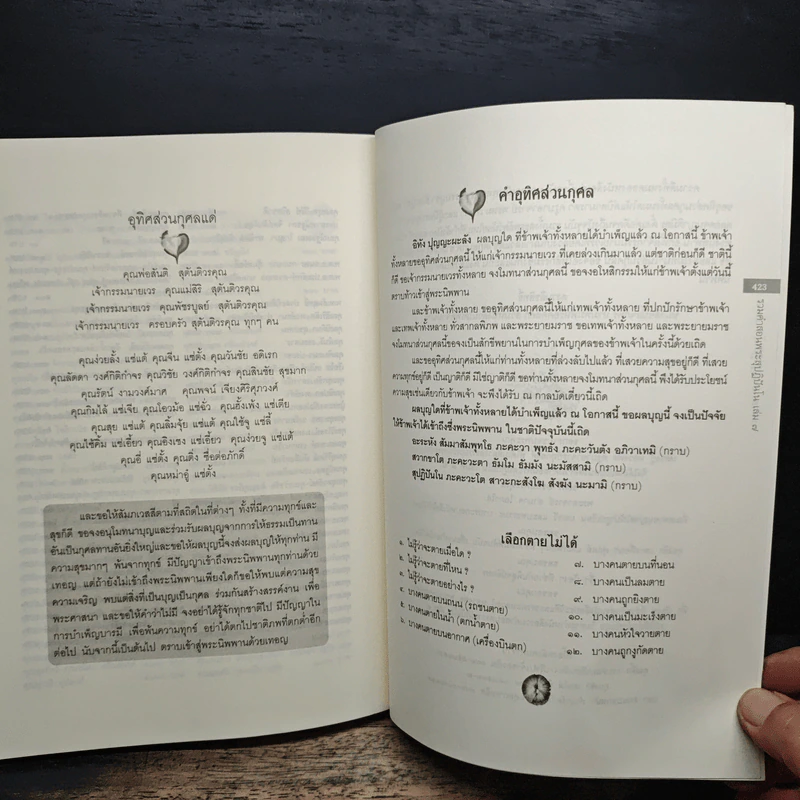 อุทิศส่วนกุศลแด่
คุณพ่อสันติ สุตันติวรคุณ
เจ้ากรรมนายเวร คุณแม่สิริ สุตันติวรคุณ
เจ้ากรรมนายเวร คุณพัชรบูลย์ สุตันติวรคุณ
เจ้ากรรมนายเวร ครอบครัว สุตันติวรคุณ ทุกๆ คน
คุณง่วยลั้ง แซ่แต้ คุณจีน แซ่ตั้ง คุณวันชัย อดิเรก
คุณลัดดา วงศ์กิติกำจร คุณวิชัย วงศ์กิติกำจร คุณสินชัย สุขมาก
คุณรัตน์ งามวงศ์มาศ คุณพจน์ เจียงศิริศุภวงค์
คุณกิมไล้ แซ่เจีย คุณโอวม้อ แซ่ฉั่ว คุณฮั้งเพ้ง แซ่เตีย
คุณสุย แซ่แต้ คุณลิ้มจุ้ย แซ่แต้ คุณใช้จู แซ่ลี้
คุณใช้คิ้ม แซ่เอี้ยว คุณอิงเซง แซ่เอี้ยว คุณง่วยจู แซ่แต้
คุณอี่ แซ่ตั้ง คุณติ่ง ชื่อต่อภักดิ์
คุณหม่าอู๋ แซ่ตั้ง
และขอให้สัมภเวสสีตามที่สถิตในที่ต่างๆ ทั้งที่มีความทุกข์และ
สุขก็ดี ขอจงอนุโมทนาบุญและร่วมรับผลบุญจากการให้ธรรมเป็นทาน
อันเป็นกุศลทานอันยิ่งใหญ่และขอให้ผลบุญนี้จงส่งผลบุญให้ทุกท่าน มี
ความสุขมากๆ พ้นจากทุกข์ มีปัญญาเข้าถึงพระนิพพานทุกท่านด้วย
เทอญ แต่ถ้ายังไม่เข้าถึงพระนิพพานเพียงใดก็ขอให้พบแต่ความสุข
ความเจริญ พบแต่สิ่งที่เป็นบุญเป็นกุศล ร่วมกันสร้างสรรค์งาน เพื่อ
พระศาสนา และขอให้คำว่าไม่มี จงอย่าได้รู้จักทุกชาติไป มีปัญญาใน
การบำเพ็ญบารมี เพื่อพ้นความทุกข์ อย่าได้ตกไปชาติภพที่ตกต่ำอีก
ต่อไป นับจากนี้เป็นต้นไป ตราบเข้าสู่พระนิพพานด้วยเทอญ
คำอุทิศส่วนกุศล
อิทัง ปุญญะผะลัง ผลบุญใด ที่ข้าพเจ้าทั้งหลายได้บำเพ็ญแล้ว ณ โอกาสนี้ ข้าพเจ้า
ทั้งหลายขออุทิศส่วนกุศลนี้ ให้แก่เจ้ากรรมนายเวร ที่เคยล่วงเกินมาแล้ว แต่ชาติก่อนก็ดี ชาตินี้
ก็ดี ขอเจ้ากรรมนายเวรทั้งหลาย จงโมทนาส่วนกุศลนี้ ขอจงอโหสิกรรมให้แก่ข้าพเจ้าตั้งแต่วันนี้
ตราบท้าวเข้าสู่พระนิพพาน
และข้าพเจ้าทั้งหลาย ขออุทิศส่วนกุศลนี้ให้แก่เทพเจ้าทั้งหลาย ที่ปกปักรักษาข้าพเจ้า
และเทพเจ้าทั้งหลาย ทั่วสากลพิภพ และพระยายมราช ขอเทพเจ้าทั้งหลาย และพระยายมราช
จงโมทนาส่วนกุศลนี้ขอจงเป็นสักขีพยานในการบำเพ็ญกุศลของข้าพเจ้าในครั้งนี้ด้วยเถิด
และขออุทิศส่วนกุศลนี้ให้แก่ท่านทั้งหลายที่ล่วงลับไปแล้ว ที่เสวยความสุขอยู่ก็ดี ที่เสวย
ความทุกข์อยู่ก็ดี เป็นญาติก็ดี มิใช่ญาติก็ดี ขอท่านทั้งหลายจงโมทนาส่วนกุศลนี้ พึงได้รับประโยชน์
ความสุขเช่นเดียวกับข้าพเจ้า จะพึงได้รับ ณ กาลบัดเดี๋ยวนี้เถิด
ผลบุญใดที่ข้าพเจ้าทั้งหลายได้บำเพ็ญแล้ว ณ โอกาสนี้ ขอผลบุญนี้ จงเป็นปัจจัย
ให้ข้าพเจ้าได้เข้าถึงซึ่งพระนิพพาน ในชาติปัจจุบันนี้เถิด
อะระหัง สัมมาสัมพุทโธ ภะคะวา พุทธัง ภะคะวันตัง อภิวาเทมิ (กราบ)
สวากขาโต ภะคะวะตา ธัมโม ธัมมัง นะมัสสามิ (กราบ)
สุปฏิปันโน ภะคะวะโต สาวะกะสังโฆ สังฆัง นะมามิ (กราบ)
เลือกตายไม่ได้
๑. ไม่รู้ว่าจะตายเมื่อใด ?
๒. ไม่รู้ว่าจะตายที่ไหน ?
๓. ไม่รู้ว่าจะตายอย่างไร ?
๔. บางคนตายบนถนน (รถชนตาย)
๕. บางคนตายในน้ำ (ตกน้ำตาย)
๖. บางคนตายบนอากาศ (เครื่องบินตก)
๗. บางคนตายบนที่นอน
๘. บางคนเป็นลมตาย
๙. บางคนถูกยิงตาย
๑๐. บางคนเป็นมะเร็งตาย
๑๑. บางคนหัวใจวายตาย
๑๒. บางคนถูกงูกัดตาย
423
รวมคำสอนพระสุปฏิปันโน เล่ม ๗